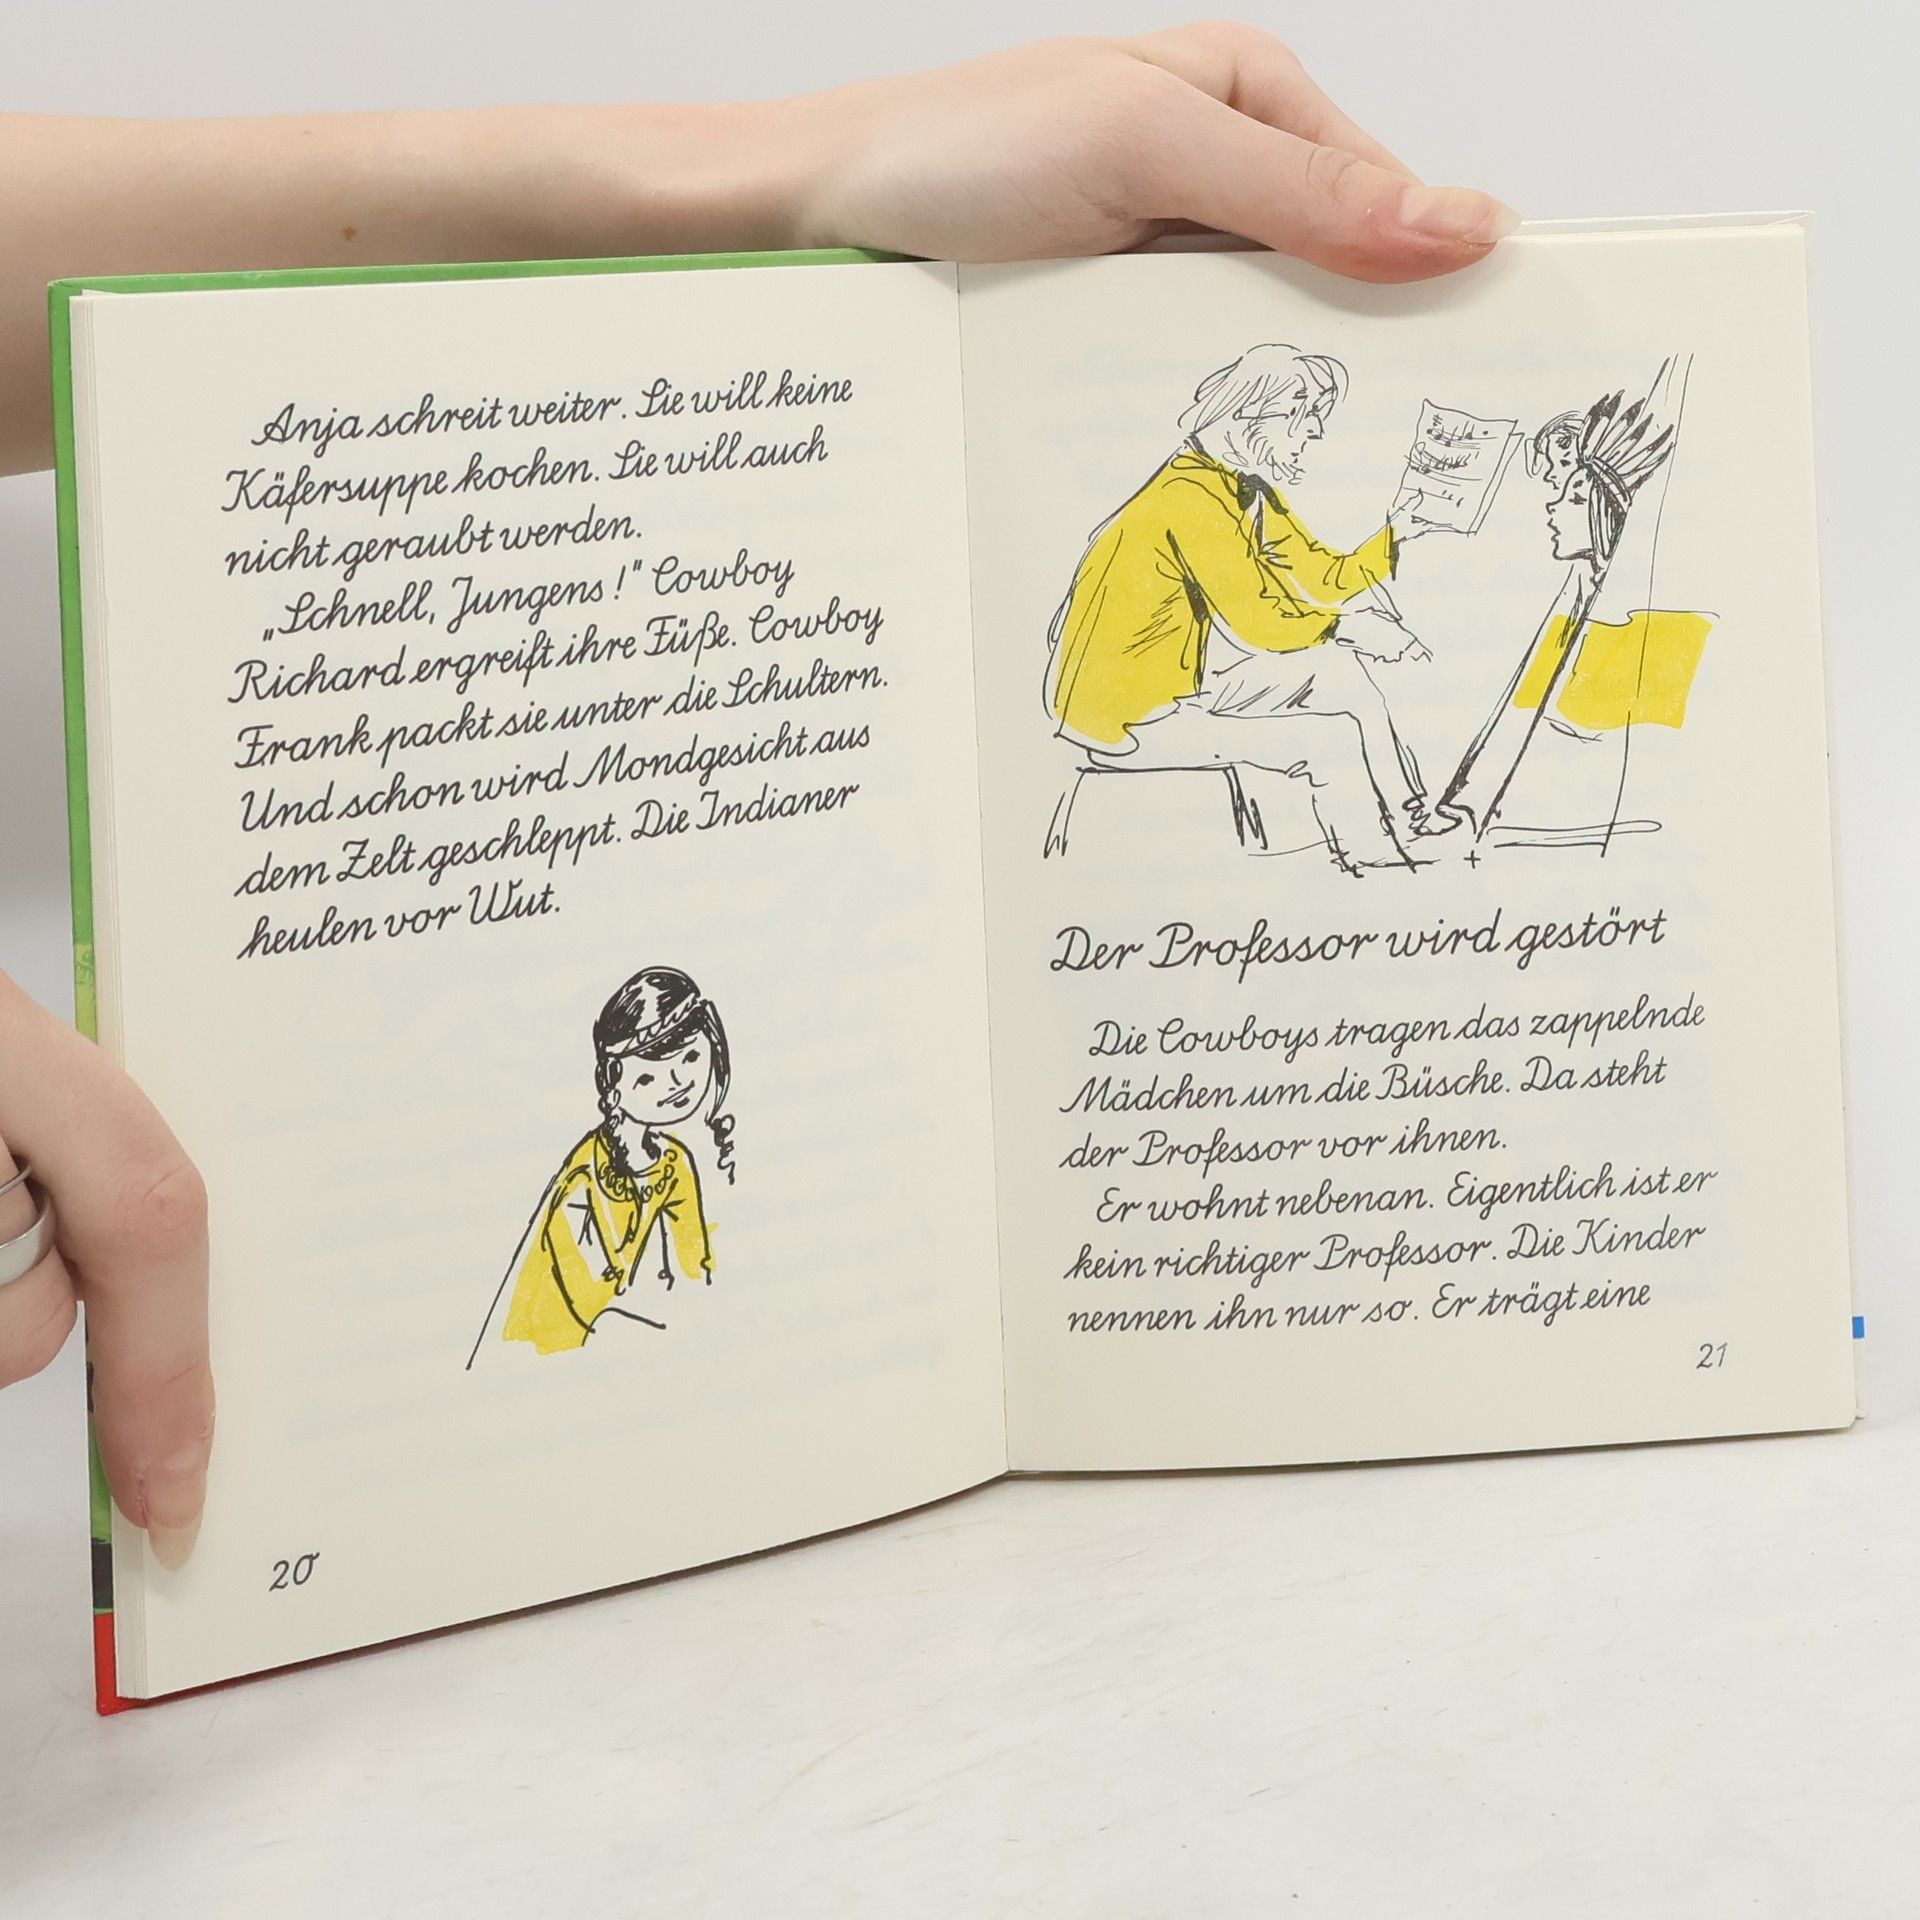 Anja schreit weiter. Sie will keine
Käfersuppe kochen. Sie will auch
nicht geraubt werden.
„Schnell, Jungens!" Cowboy
Richard ergreift ihre Füße. Cowboy
Frank packt sie unter die Schultern.
Und schon wird Mondgesicht aus
dem Zelt geschleppt. Die Indianer
heulen vor Wut.
20
Der Professor wird gestört
Die Cowboys tragen das zappelnde
Mädchen um die Büsche. Da steht
der Professor vor ihnen.
Er wohnt nebenan. Eigentlich ist er
kein richtiger Professor. Die Kinder
nennen ihn nur so. Er trägt eine
21